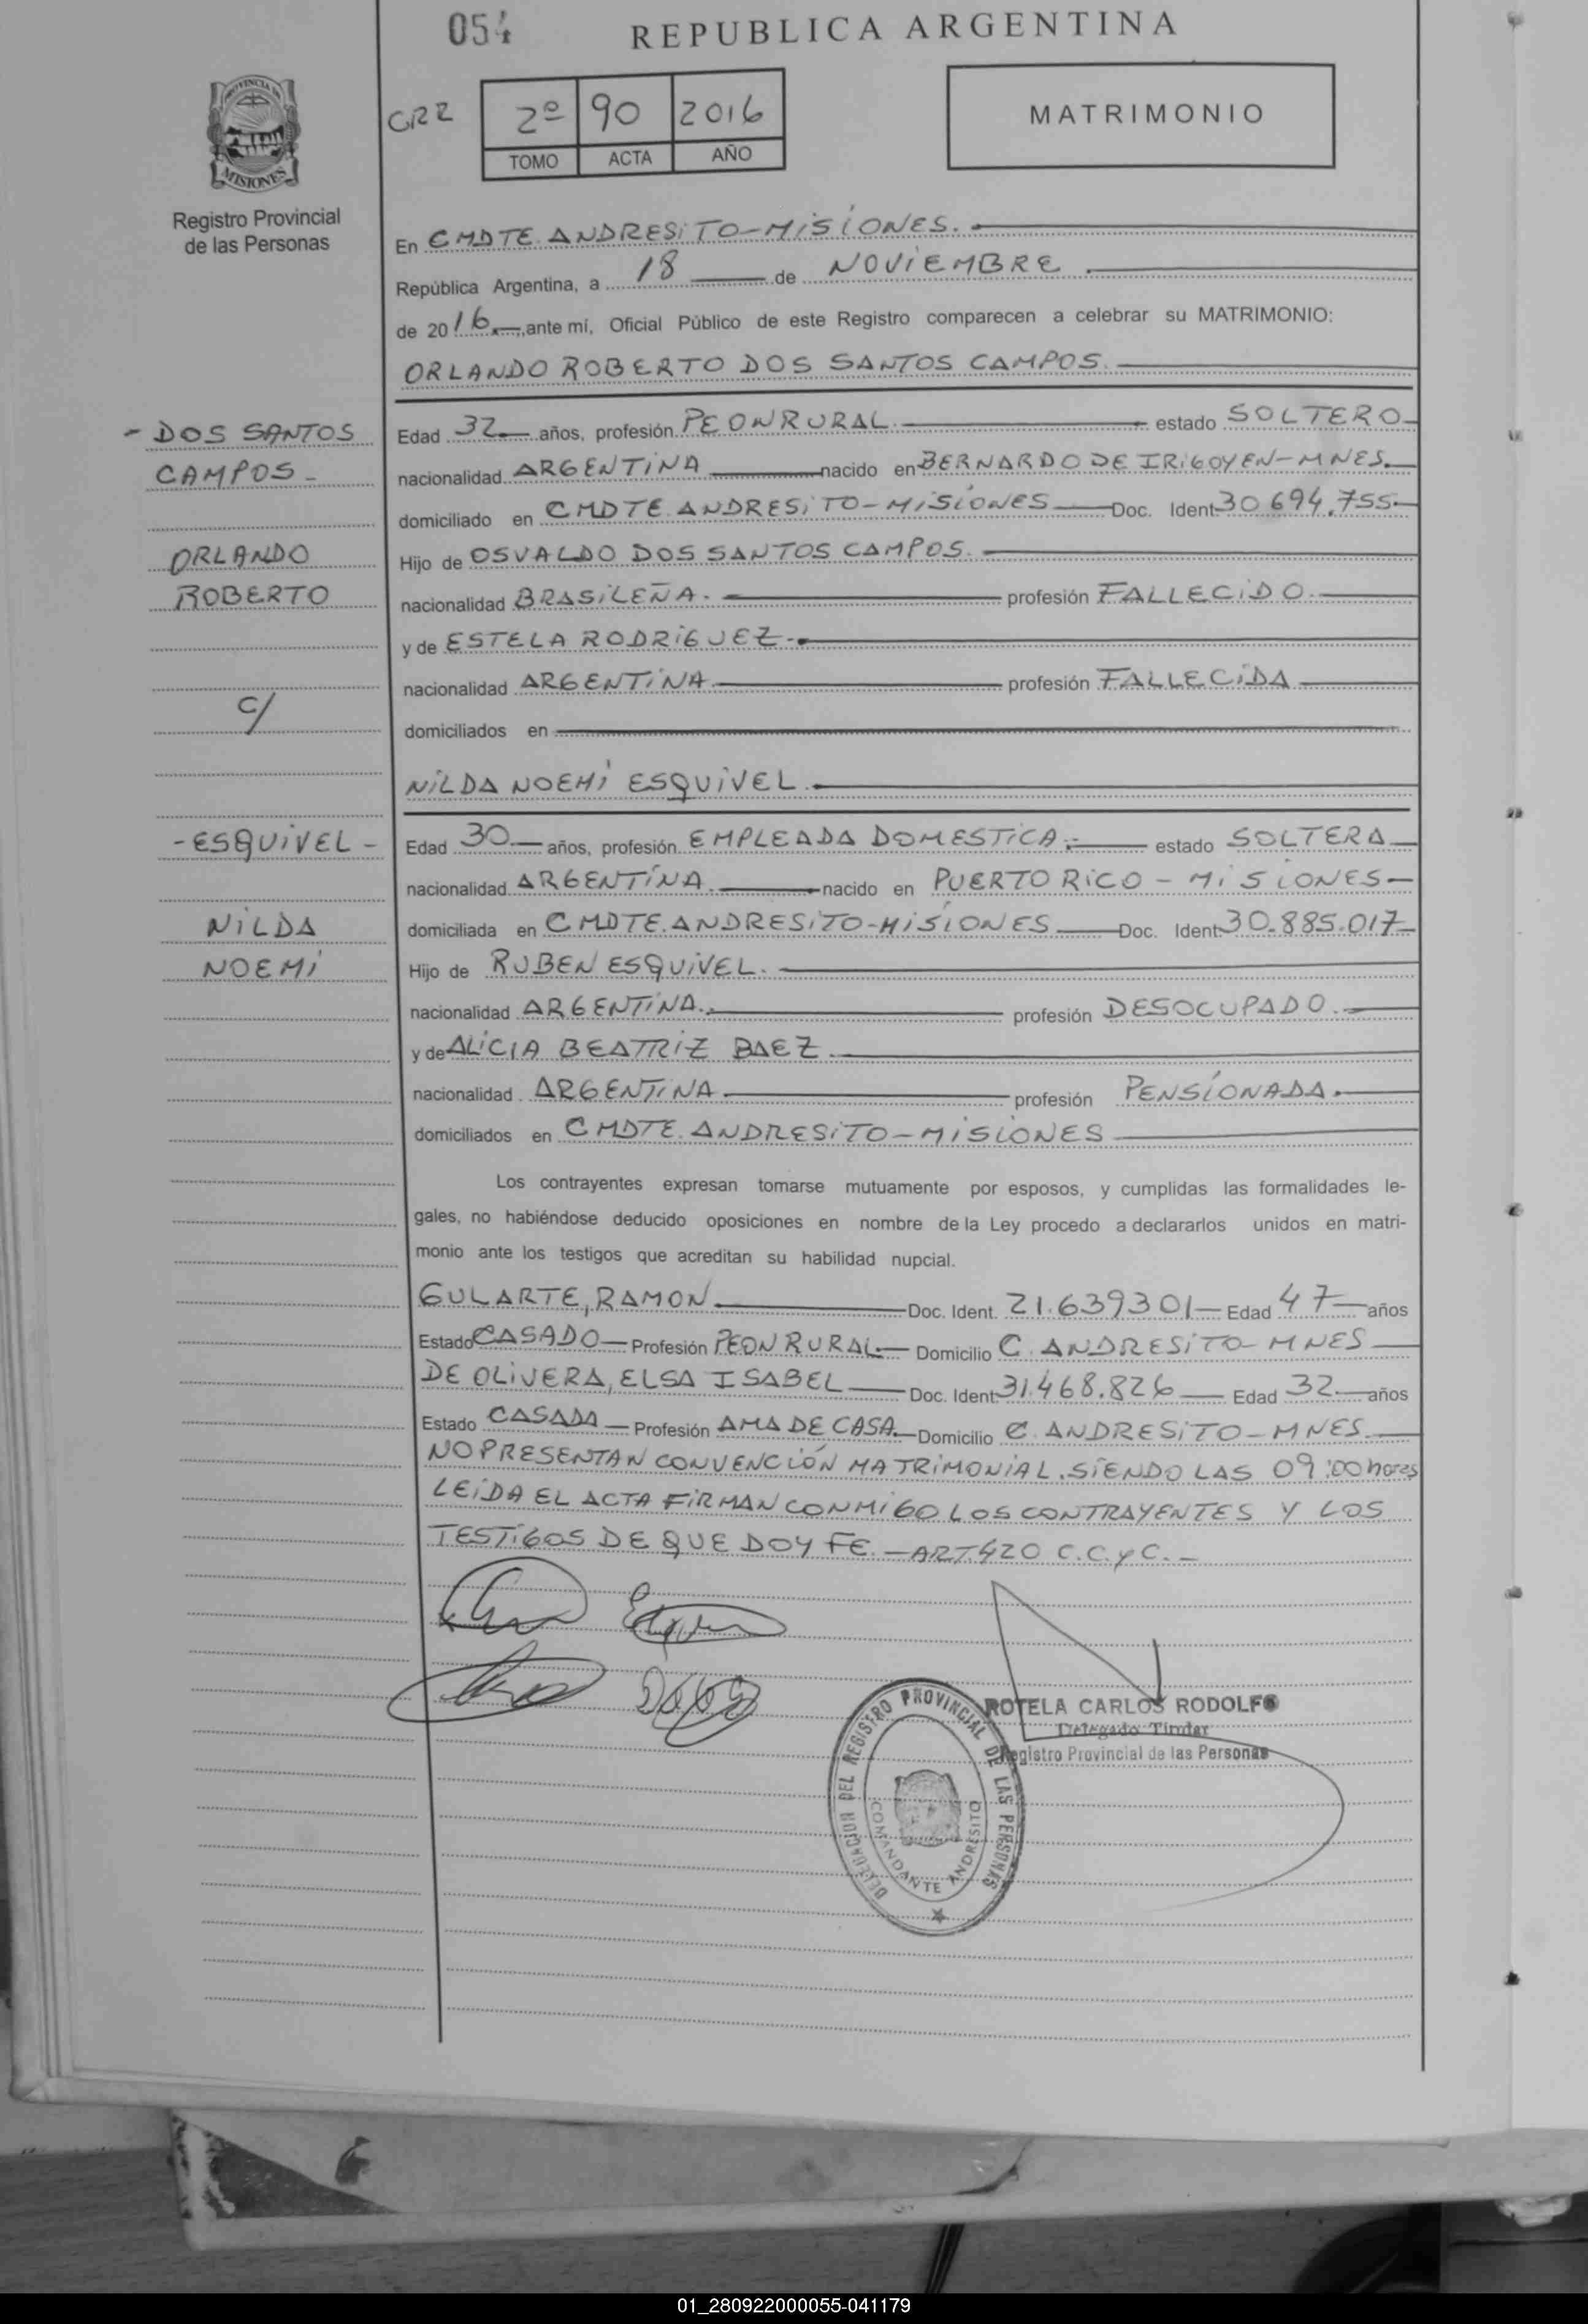 054
REPUBLICA ARGENTINA
PROVINCIA DE
MISIONES
Registro Provincial
de las Personas
CR2
2º 90 2016
TOMO ACTA AÑO
MATRIMONIO
En CMDTE. ANDRESITO-MISIONES.
República Argentina, a 18 de NOVIEMBRE
de 2016, ante mí, Oficial Público de este Registro comparecen a celebrar su MATRIMONIO:
ORLANDO ROBERTO DOS SANTOS CAMPOS.
- DOS SANTOS
CAMPOS -
ORLANDO
ROBERTO
c/
Edad 32 años, profesión PEON RURAL estado SOLTERO
nacionalidad ARGENTINA nacido en BERNARDO DE IRIGOYEN-MNES.
domiciliado en CMDTE. ANDRESITO-MISIONES Doc. Ident 30.694.755
Hijo de OSVALDO DOS SANTOS CAMPOS.
nacionalidad BRASILEÑA. profesión FALLECIDO.
y de ESTELA RODRIGUEZ.
nacionalidad ARGENTINA profesión FALLECIDA
domiciliados en
NILDA NOEMI ESQUIVEL.
- ESQUIVEL -
NILDA
NOEMI
Edad 30 años, profesión EMPLEADA DOMESTICA. estado SOLTERA
nacionalidad ARGENTINA. nacido en PUERTO RICO - MISIONES
domiciliada en CMDTE. ANDRESITO-MISIONES Doc. Ident 30.885.017
Hijo de RUBEN ESQUIVEL.
nacionalidad ARGENTINA. profesión DESOCUPADO.
y de ALICIA BEATRIZ BAEZ
nacionalidad ARGENTINA profesión PENSIONADA.
domiciliados en CMDTE. ANDRESITO-MISIONES
Los contrayentes expresan tomarse mutuamente por esposos, y cumplidas las formalidades le-
gales, no habiéndose deducido oposiciones en nombre de la Ley procedo a declararlos unidos en matri-
monio ante los testigos que acreditan su habilidad nupcial.
GULARTE, RAMON Doc. Ident. 21.639301 Edad 47 años
Estado CASADO Profesión PEON RURAL Domicilio C. ANDRESITO-MNES
DE OLIVERA, ELSA ISABEL Doc. Ident 31.468.826 Edad 32 años
Estado CASADA Profesión AMA DE CASA. Domicilio C. ANDRESITO-MNES.
NO PRESENTAN CONVENCIÓN MATRIMONIAL. SIENDO LAS 09:00 horas
LEIDA EL ACTA FIRMAN CONMIGO LOS CONTRAYENTES Y LOS
TESTIGOS DE QUE DOY FE. - ART. 420 C.C.y C. -
ROTELA CARLOS RODOLFO
Delegado Titular
Registro Provincial de las Personas
DELEGACION DEL REGISTRO PROVINCIAL DE LAS PERSONAS
COMANDANTE ANDRESITO
01_280922000055-041179